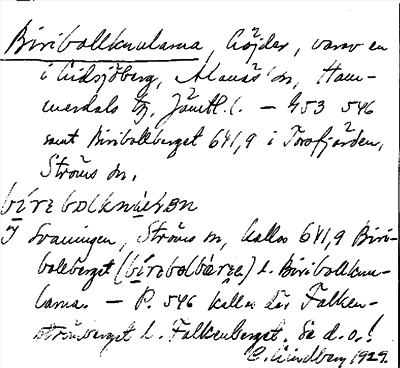 Biribollknularna, höjder, varav en
i Lidsjöberg, Alanäs sn, Ham-
merdals tg, Jämtl. l. – 453 546
samt Biribollberget 641,9 i Torsfjärden,
Ströms sn.
bírebolknulᴇn
I Svaningen, Ströms sn, kallas 641,9 Biri-
boleberget (bírebolbärᴇt) l. Biribollknu-
larna. – P. 546 kallas där Falken-
strömberget l. Falkenberget. Se d.o.!
C. Lindberg 1929.